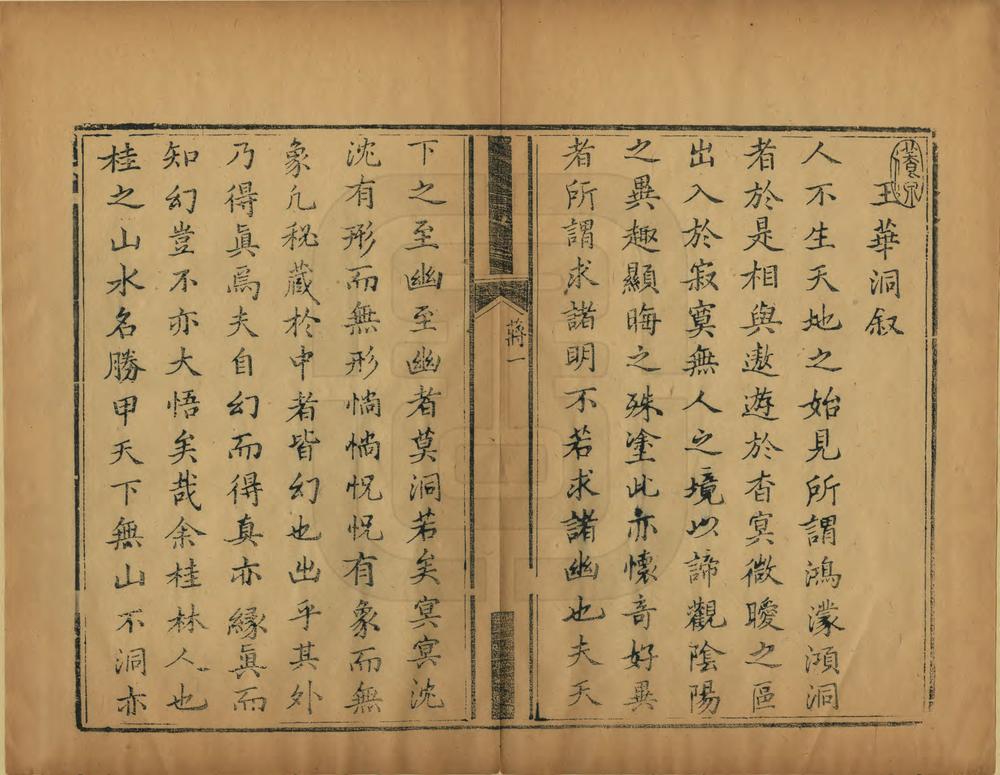 玉華洞叙
人不生天地之始見所謂鴻濛澒洞
者於是相與遨遊於杳冥微曖之區
出入於寂寞無人之境以諦觀陰陽
之異趣顯晦之殊塗此亦懷竒好異
者所謂求諸明不若求諸幽也夫天
蔣一
下之至幽至幽者莫洞若矣冥冥沈
沈有形而無形惝惝怳怳有象而無
象凢秘藏於中者皆幻也出乎其外
乃得眞焉夫自幻而得真亦緣眞而
知幻豈不亦大悟矣哉余桂林人也
桂之山水名勝甲天下無山不洞亦